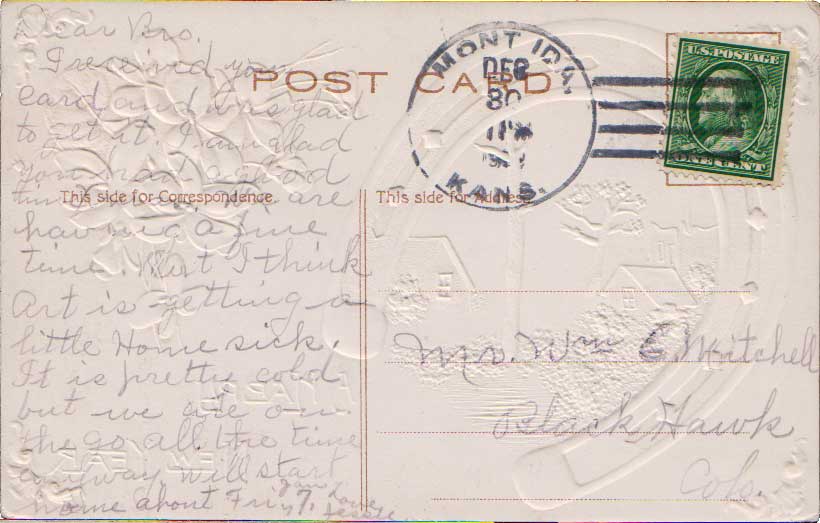 Dear Bro.
I received your
card and was glad
to get it. I am glad
you had a good
time are
having a fine
time. But I think
Art is getting a
little Home sick.
It is pretty cold
but we are on
the go all the time
anyway will start
home about Fri 7.
POST CARD
This side for Correspondence.
This side for Address.
MONT IDA,
DEC
30
KANS.
U.S. POSTAGE
ONE CENT
Mr. Wm C. Mitchell
Black Hawk
Colo.